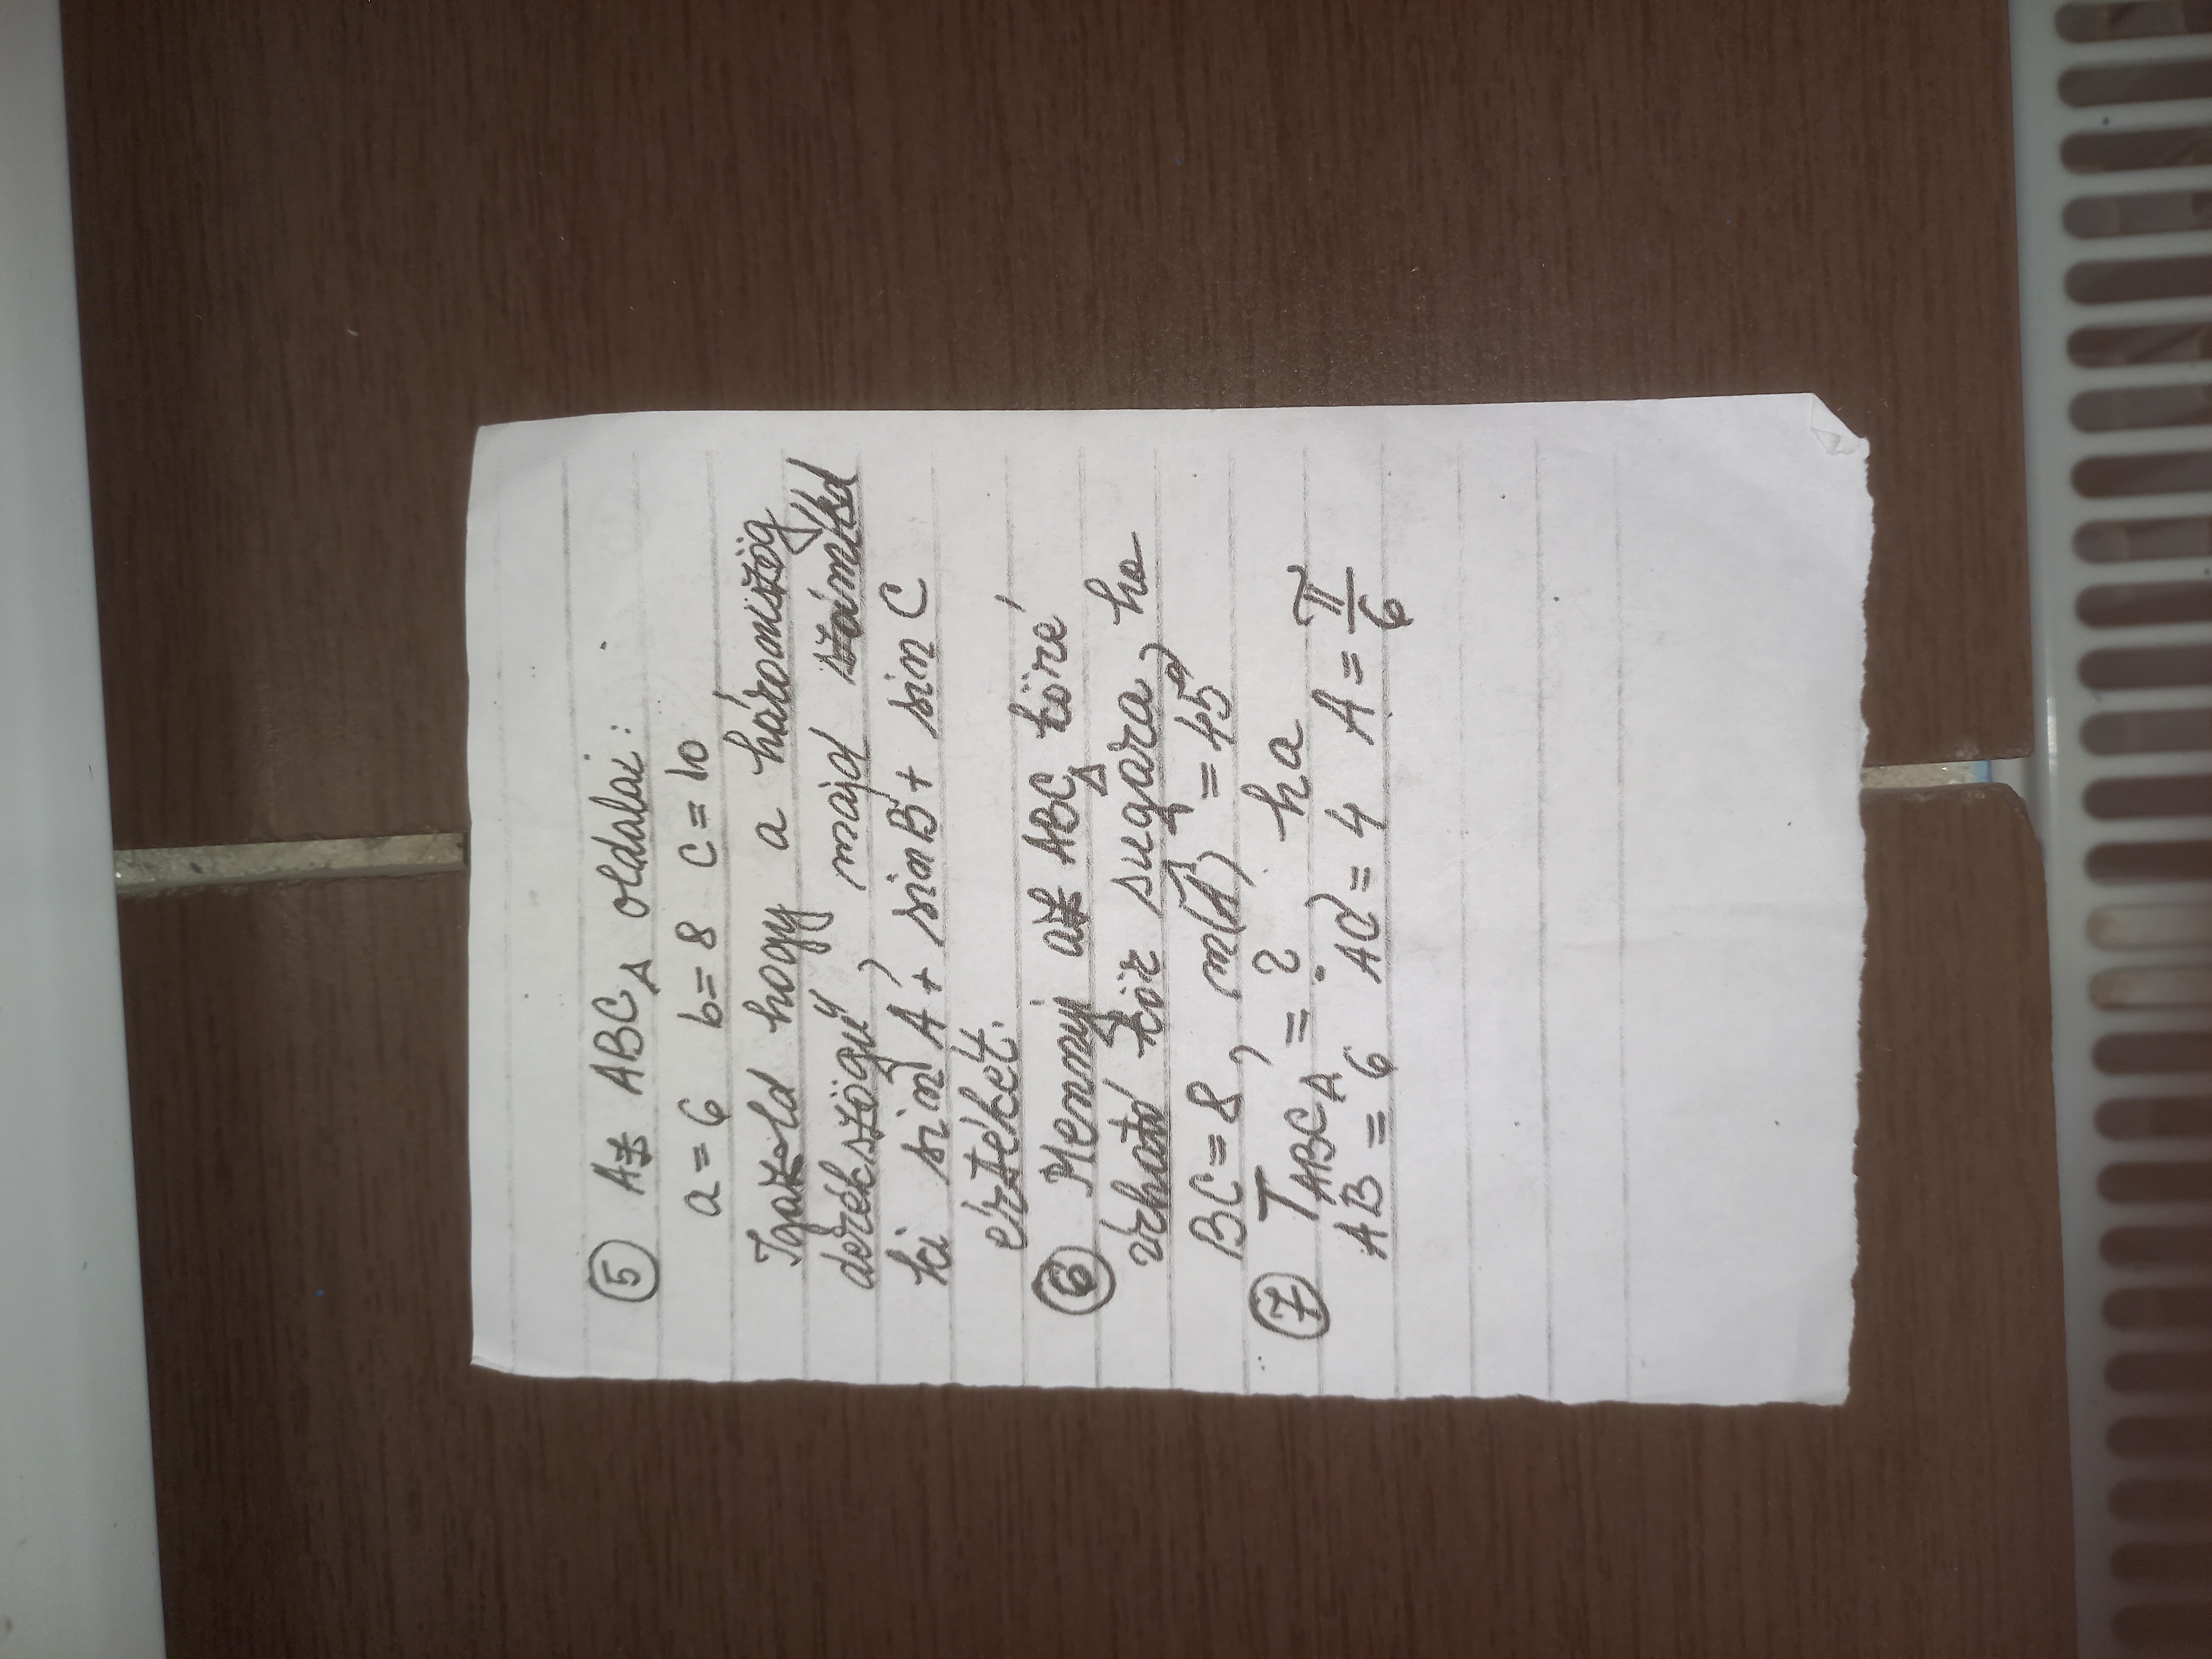 ⑤ Az ABC△ oldalai:
a = 6 b = 8 c = 10
Igazold hogy a háromszög
derékszögű, majd számítsd
ki sin A + sin B + sin C
értékét.
⑥ Mennyi az ABC△ köré
írható kör sugara, ha
BC = 8, m(Â) = 45°
⑦ T ABC△ = ? ha
AB = 6 AC = 4 A = π/6